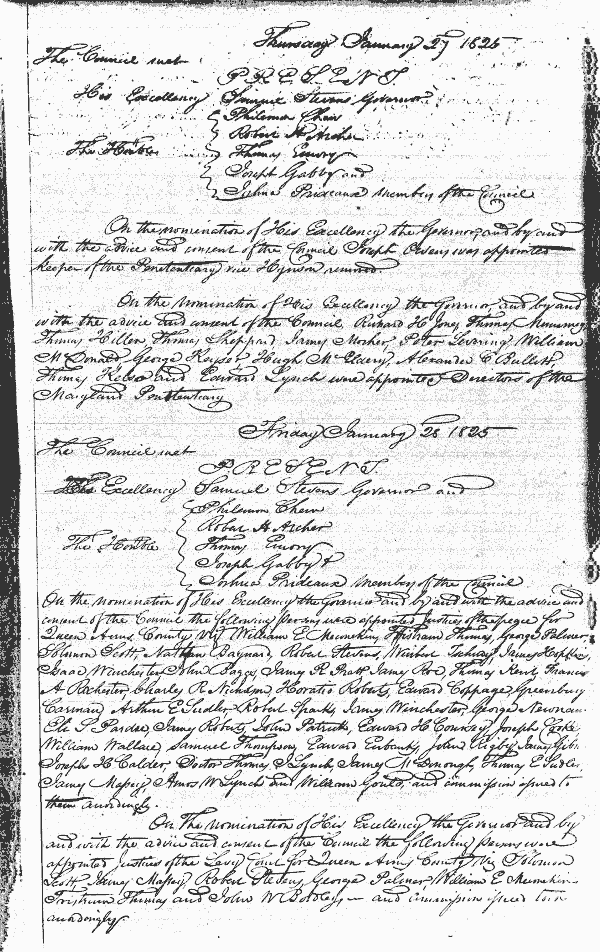 Thursday January 27 1825
The Council met
PRESENT
His Excellency Samuel Stevens Governor
Philemon Chew
Robert H Archer
The Honble Thomas Emory
Joseph Gabby and
Joshua Prideaux members of the Council
On the nomination of His Excellency the Governor and by and
with the advice and consent of the Council Joseph Owens was appointed
keeper of the Penitentiary vice Hynson removed
On the nomination of His Excellency the Governor and by and
with the advice and consent of the Council Richard H Jones Thomas
Thomas Hillen Thomas Sheppard, James Mosher, Peter Levering William
McDonald George Keyser Hugh McElderry, Alexander C Bullitt,
Thomas Kelso and Edward Lynch were appointed Directors of the
Maryland Penitentiary
Friday January 28 1825
The Council met
PRESENT
His Excellency Samuel Stevens Governor and
Philemon Chew
Robert H Archer
The Honble Thomas Emory
Joseph Gabby &
Joshua Prideaux members of the Council
On the nomination of His Excellency the Governor and by and with the advice and
consent of the Council the following persons were appointed Justices of the peace for
Queen Anns County viz William E Meconekin, Tristram Thomas, George Palmer,
Solomon Scott, Nathan Baynard, Robert Stevens, James
Isaac Winchester John James R Pratt James Roe, Thomas Kent, Francis
A Rochester Charles R Nicholson Horatio Roberts, Edward Coppage, Greenbury
Carman Arthur E Sudler Robert Sparks, James Winchester, George Newnam
Eli S Pardee, James Roberts, John Patrick, Edward H Joseph
William Wallace, Samuel Thompson, Edward Eubanks, John Rigby James
Joseph H Calder, Doctor Thomas J Lynch James McDonough, Thomas E Sudler
James Massey Amos W Lynch and William Gould, and commission issued to
them accordingly.
On The nomination of His Excellency the Governor and by
and with the advice and consent of the Council the following persons were
appointed justices of the Levy Court for Queen Anns County viz Solomon
Scott, James Massey Robert Stevens, George Palmer, William E Meconekin
Tristram Thomas and John W Bordley and commission issued to
accordingly